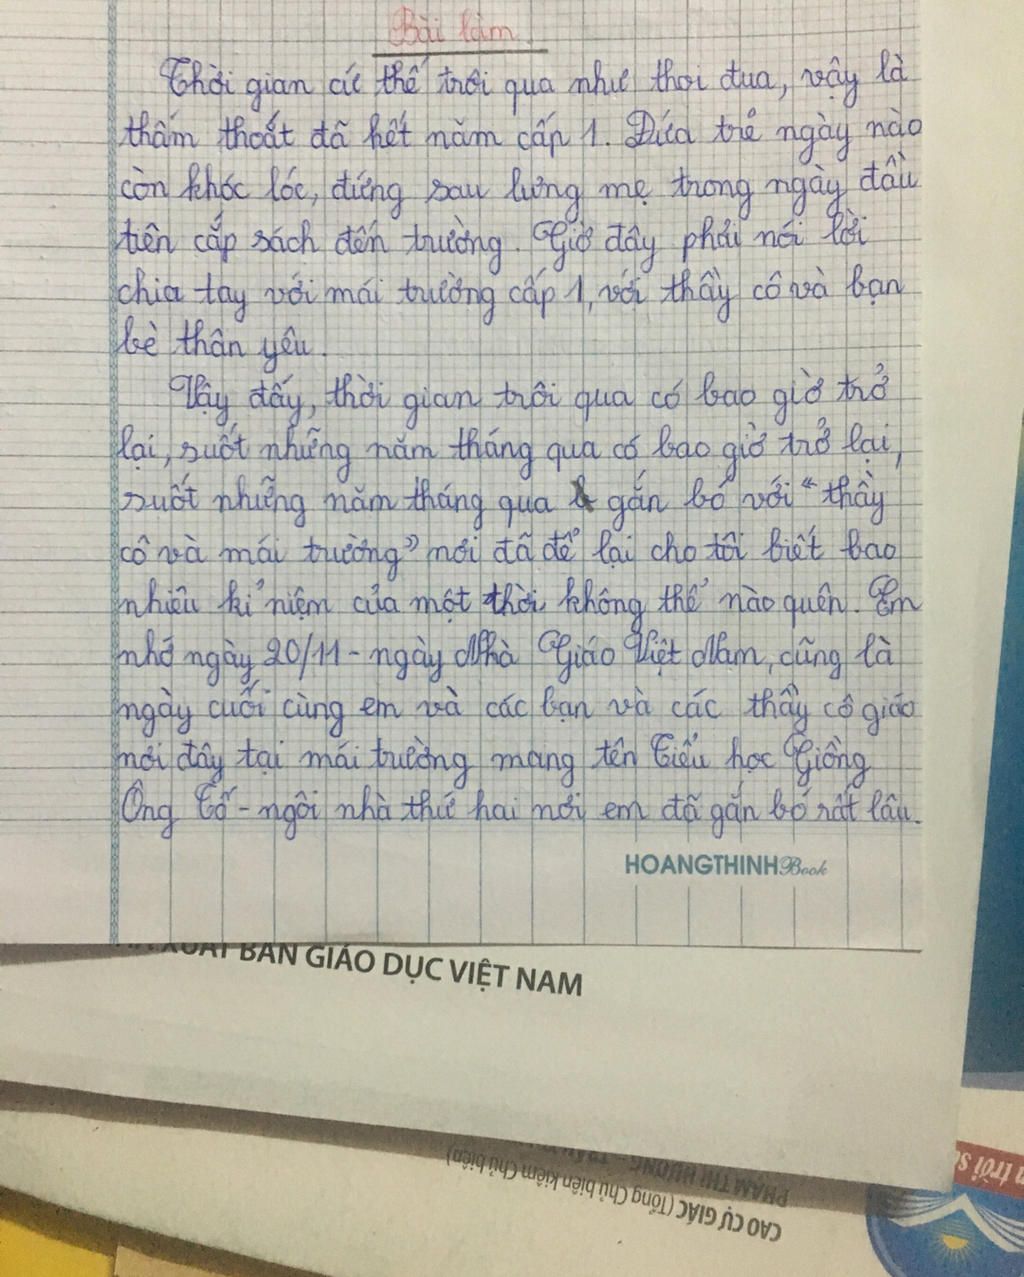 Bài làm
Thời gian cứ thế trôi qua như thoi đưa, vậy là
thấm thoát đã hết năm cấp 1. Đứa trẻ ngày nào
còn khóc lóc, đứng sau lưng mẹ trong ngày đầu
tiên cắp sách đến trường. Giờ đây phải nói lời
chia tay với mái trường cấp 1, với thầy cô và bạn
bè thân yêu.
Vậy đấy, thời gian trôi qua có bao giờ trở
lại, suốt những năm tháng qua có bao giờ trở lại,
suốt những năm tháng qua gắn bó với "thầy
cô và mái trường" nơi đã để lại cho tôi biết bao
nhiêu kỉ niệm của một thời không thể nào quên. Em
nhớ ngày 20/11 - ngày Nhà Giáo Việt Nam, cũng là
ngày cuối cùng em và các bạn và các thầy cô giáo
nơi đây tại mái trường mang tên Tiểu học Giồng
Ông Tố - ngôi nhà thứ hai nơi em đã gắn bó rất lâu.
HOANGTHINH Book
XUẤT BẢN GIÁO DỤC VIỆT NAM
PHẠM THỊ HƯƠNG - TRẦN
CAO CỰ GIÁC (Tổng Chủ biên kiêm Chủ biên)
trời s